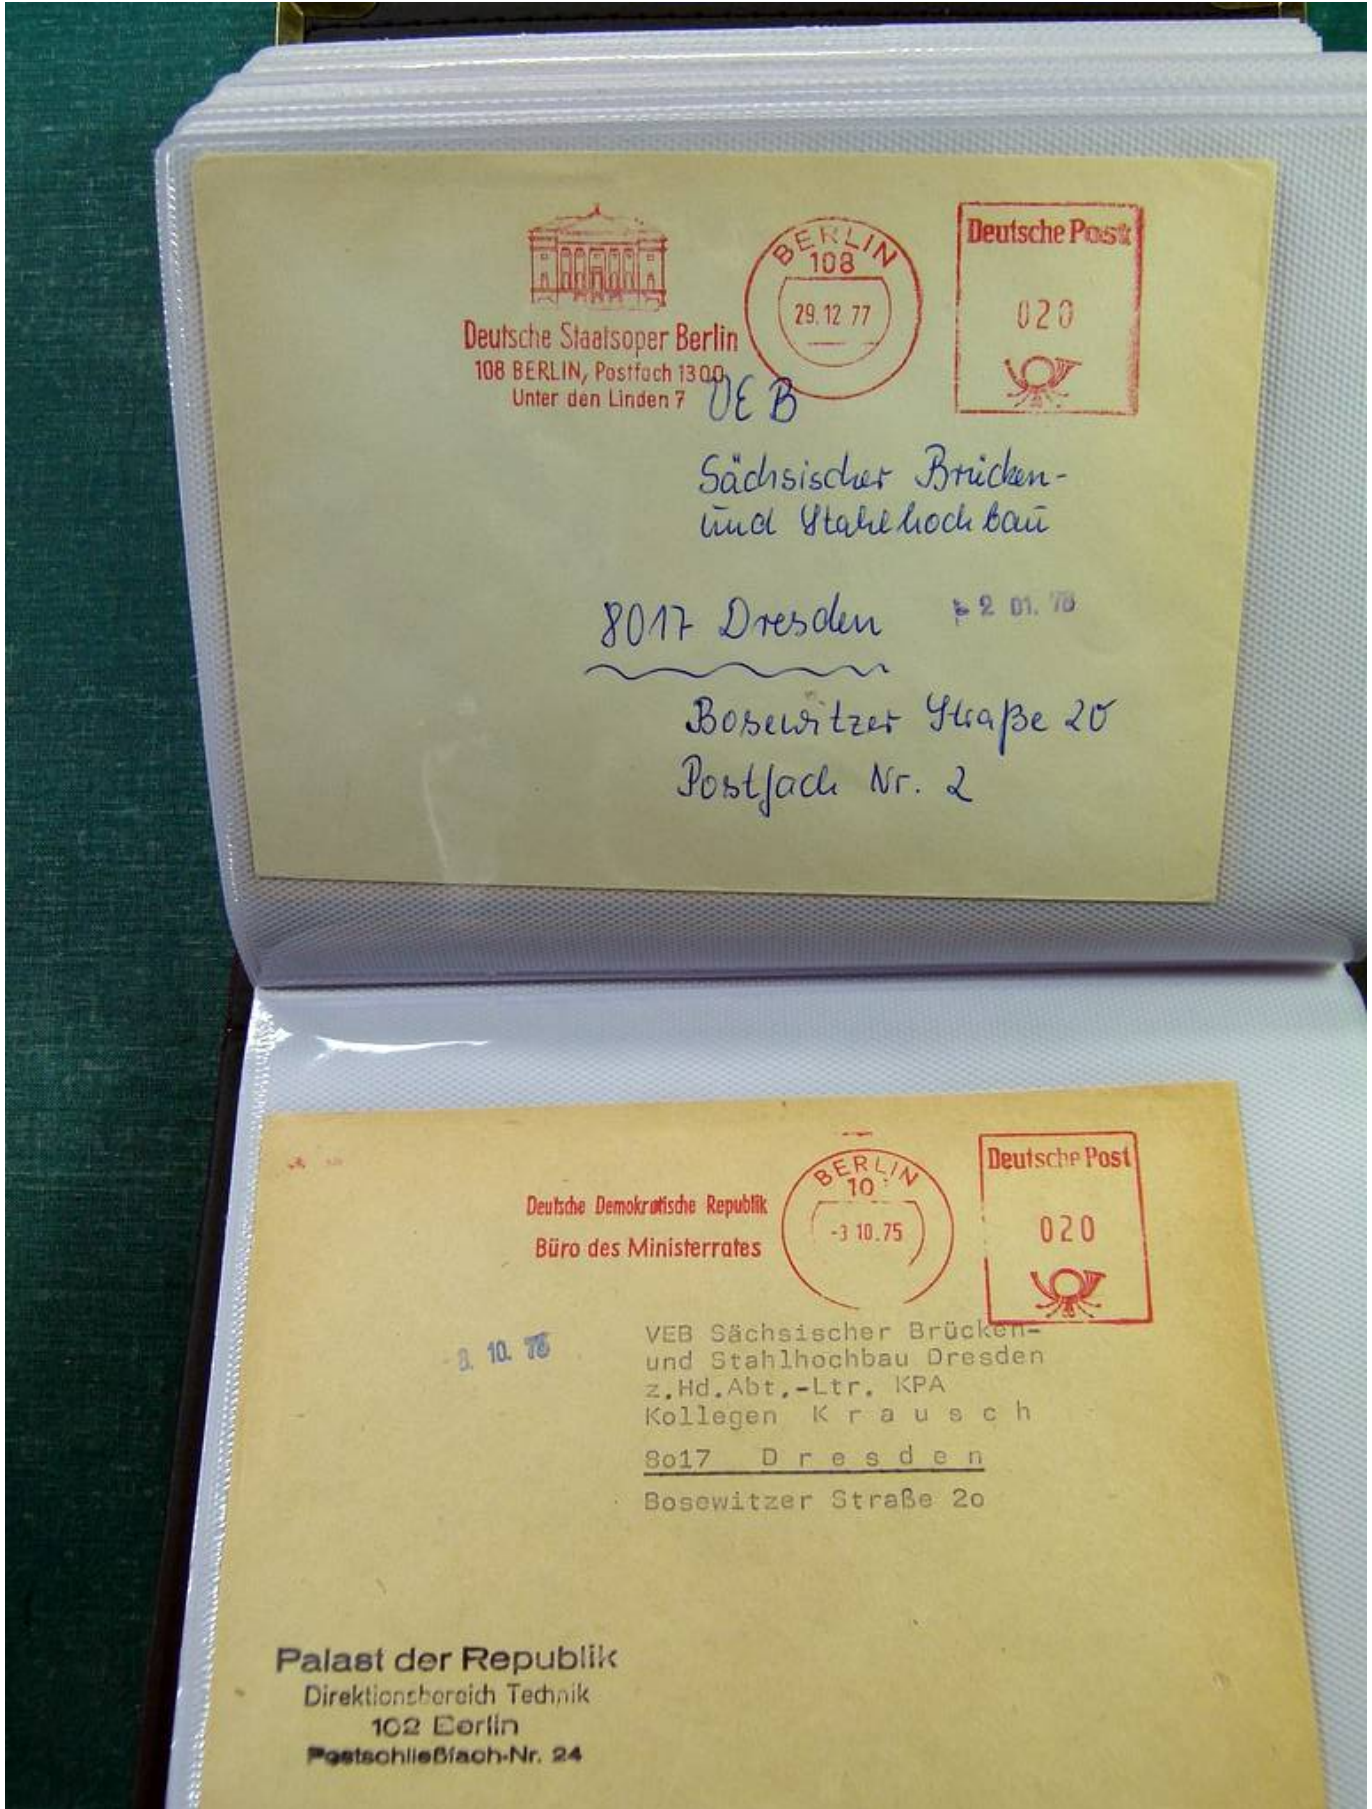 Deutsche Staatsoper Berlin
108 BERLIN, Postfach 1300
Unter den Linden 7
BERLIN
108
29.12 77
Deutsche Post
020
VEB
Sächsischer Brücken-
und Stahlhochbau
8017 Dresden
2 01. 78
Bosewitzer Straße 20
Postfach Nr. 2
Deutsche Demokratische Republik
Büro des Ministerrates
BERLIN
10
-3 10.75
Deutsche Post
020
10.
VEB Sächsischer Brücken-
und Stahlhochbau Dresden
z.Hd.Abt.-Ltr. KPA
Kollegen K r a u s c h
8o17 D r e s d e n
Bosewitzer Straße 2o
Palast der Republik
Direktionsbereich Technik
102 Berlin
Postschließfach-Nr. 24